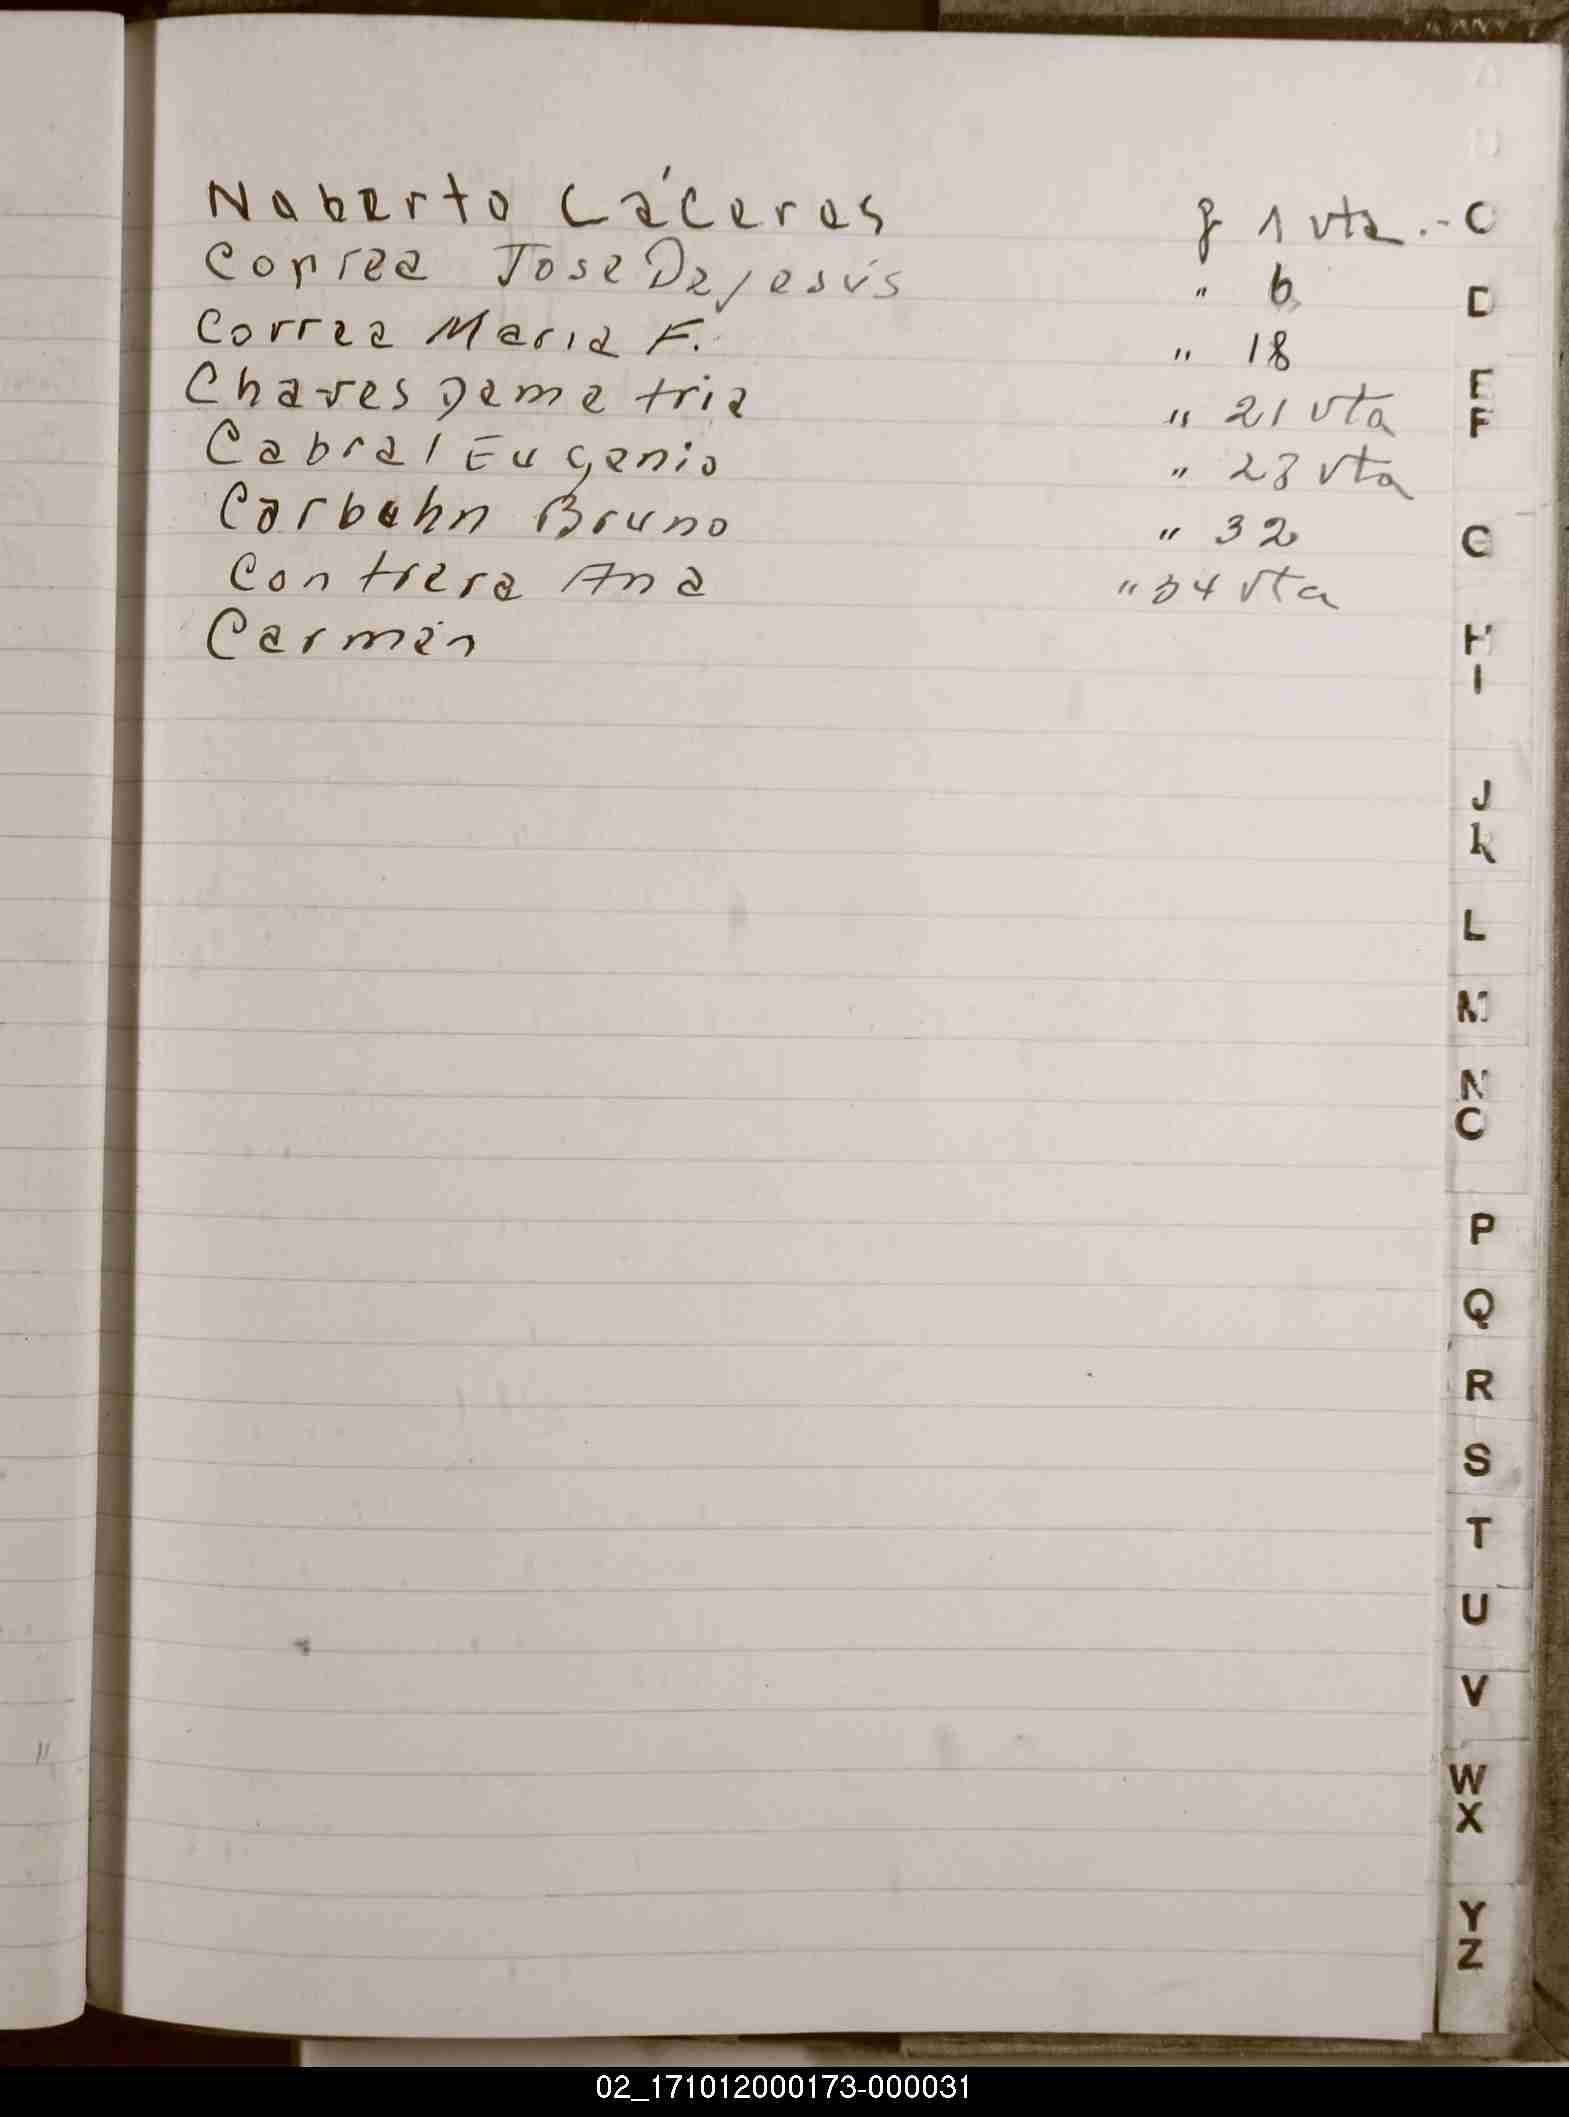 Noberto Cáceres f 1 vta.-
Correa Jose Dejesús " 6
Correa Maria F. " 18
Chaves Demetria " 21 vta
Cabral Eugenio " 23 vta
Carbuhn Bruno " 32
Contrera Ana " 34 vta
Carmen
C
D
E
F
G
H
I
J
K
L
M
N
O
P
Q
R
S
T
U
V
W
X
Y
Z
02_171012000173-000031